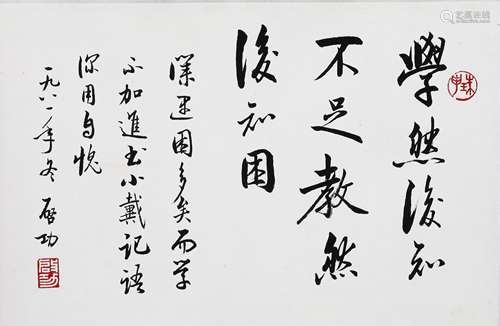 學然後知
不足教然
後知困
困多矣而学
不加進书小戴記語
深用自愧
一九八一年冬 启功